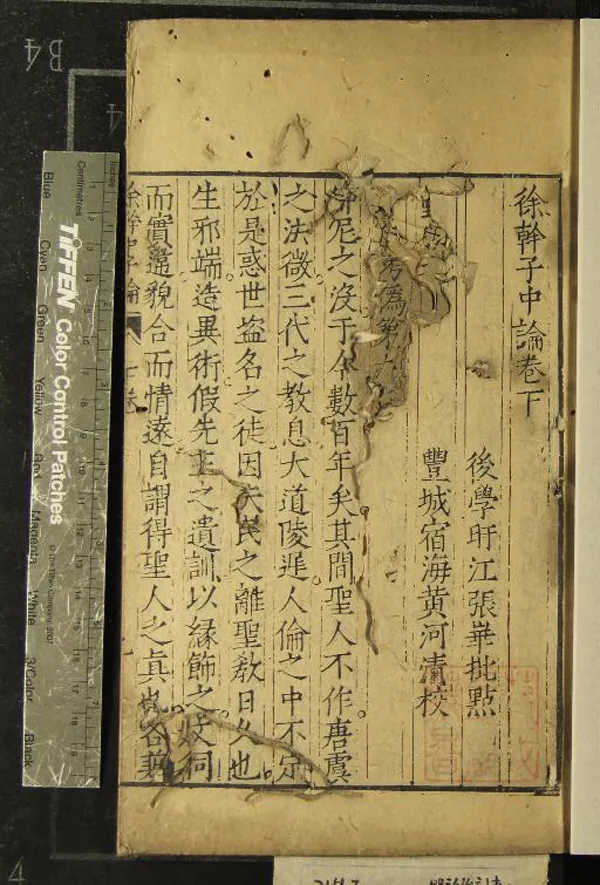 徐幹子中論卷下
後學盱江張畢批點
豐城宿海黃河清校
考偽第
仲尼之沒于今數百年矣其間聖人不作唐虞
之法微三代之教息大道陵遲人倫之中不定
於是惑世盜名之徒因夫民之離聖教日久也
生邪端造異術假先王之遺訓以緣飾之文同
而實違貌合而情遠自謂得聖人之真也各兼
徐幹中論 下卷
B4
4
4
Inches
Centimetres
TIFFEN Color Control Patches
© The Tiffen Company, 2007
Blue
Cyan
Green
Yellow
Red
Magenta
White
3/Color
Black